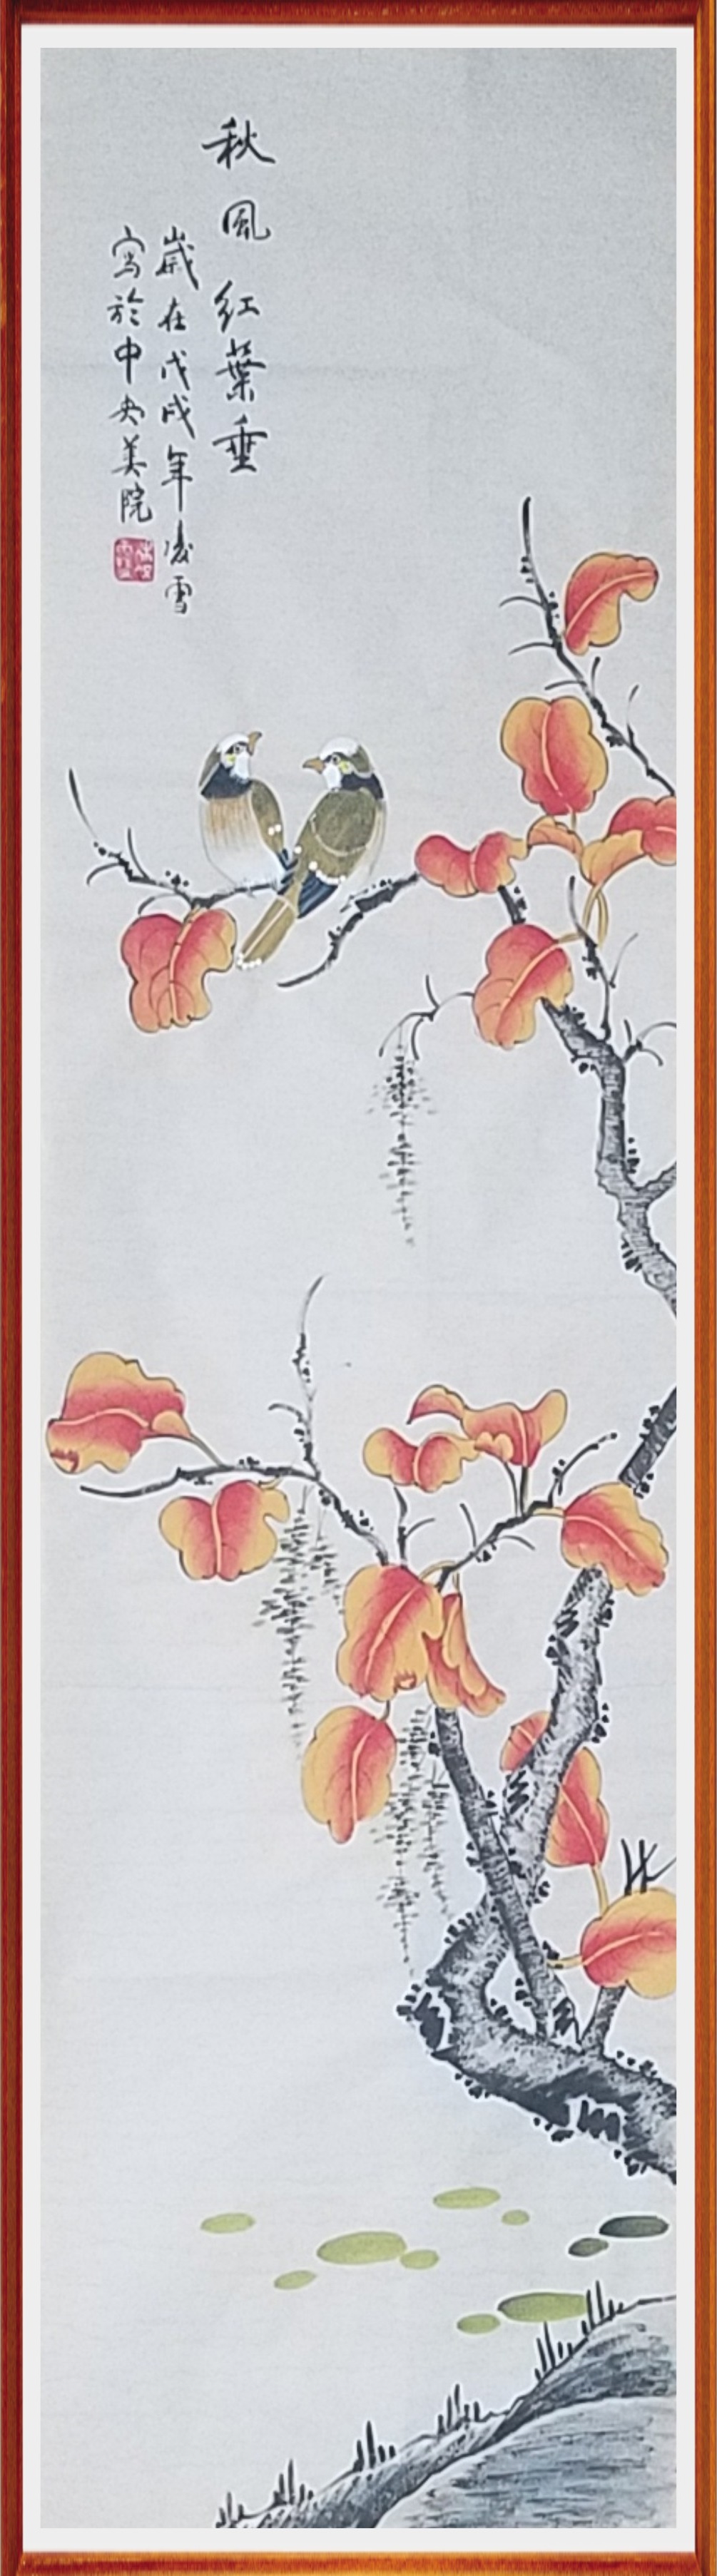 秋風红葉垂
歲在戊戌年凌雪
寫於中央美院